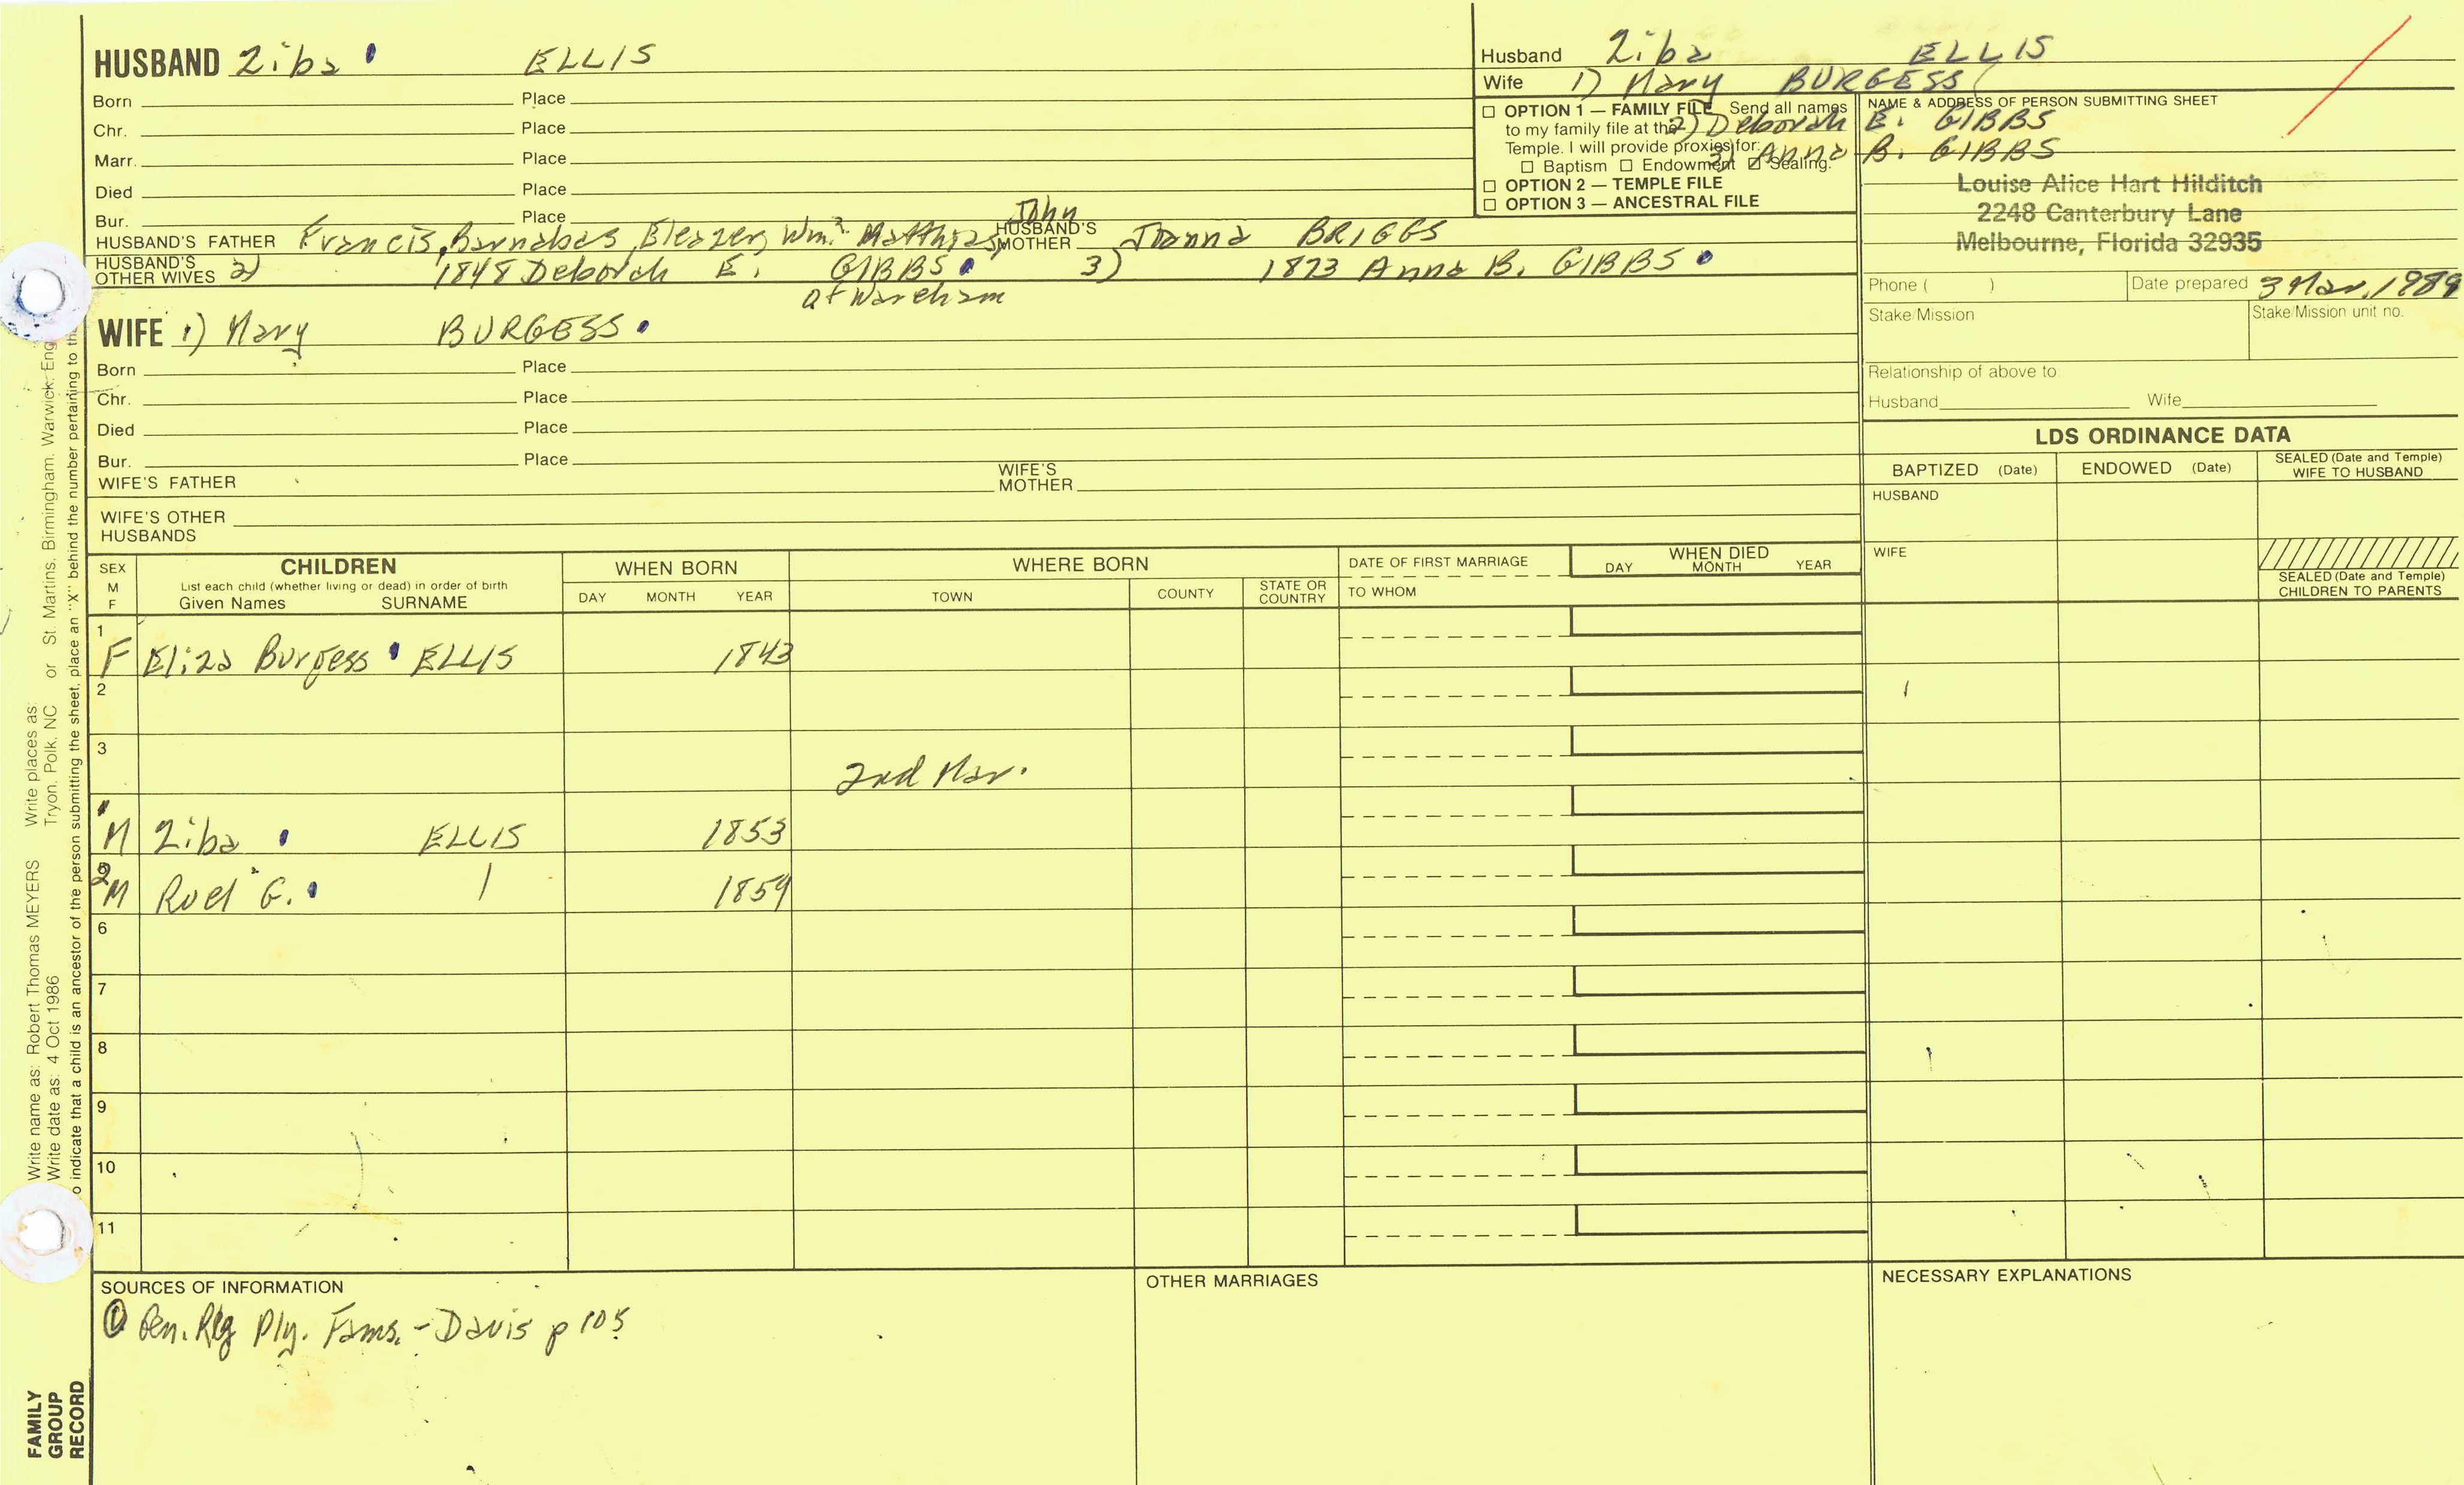 HUSBAND Ziba ELLIS
Born Place
Chr. Place
Marr. Place
Died Place
Bur. Place
John
HUSBAND'S FATHER Francis, Barnabas, Eleazer, Wm.? Matthias, HUSBAND'S MOTHER Joanna BRIGGS
HUSBAND'S OTHER WIVES 2) 1848 Deborah E. GIBBS 3) 1873 Anna B. GIBBS
of Wareham
WIFE 1) Mary BURGESS
Born Place
Chr. Place
Died Place
Bur. Place
WIFE'S FATHER WIFE'S MOTHER
WIFE'S OTHER HUSBANDS
Husband Ziba ELLIS
Wife 1) Mary BURGESS
2) Deborah E. GIBBS
3) Anna B. GIBBS
☐ OPTION 1 — FAMILY FILE Send all names
to my family file at the
Temple. I will provide proxies for:
☐ Baptism ☐ Endowment ☑ Sealing.
☐ OPTION 2 — TEMPLE FILE
☐ OPTION 3 — ANCESTRAL FILE
NAME & ADDRESS OF PERSON SUBMITTING SHEET
Louise Alice Hart Hilditch
2248 Canterbury Lane
Melbourne, Florida 32935
Phone ( ) Date prepared 3 Mar. 1989
Stake/Mission Stake/Mission unit no.
Relationship of above to:
Husband Wife
LDS ORDINANCE DATA
BAPTIZED (Date) ENDOWED (Date) SEALED (Date and Temple) WIFE TO HUSBAND
HUSBAND
WIFE
SEALED (Date and Temple) CHILDREN TO PARENTS
SEX M F CHILDREN WHEN BORN WHERE BORN DATE OF FIRST MARRIAGE WHEN DIED
List each child (whether living or dead) in order of birth
Given Names SURNAME DAY MONTH YEAR TOWN COUNTY STATE OR COUNTRY TO WHOM DAY MONTH YEAR
1
F Eliza Burgess ELLIS 1843
2
3
2nd Mar.
1
M Ziba ELLIS 1853
2
M Ruel G. 1859
6
7
8
9
10
11
SOURCES OF INFORMATION
① Gen. Reg Ply. Fams. - Davis p 105
OTHER MARRIAGES
NECESSARY EXPLANATIONS
Write name as: Robert Thomas MEYERS Write places as:
Write date as: 4 Oct 1986 Tryon, Polk, NC or St. Martins, Birmingham, Warwick, Eng
o indicate that a child is an ancestor of the person submitting the sheet, place an "X" behind the number pertaining to th
FAMILY
GROUP
RECORD